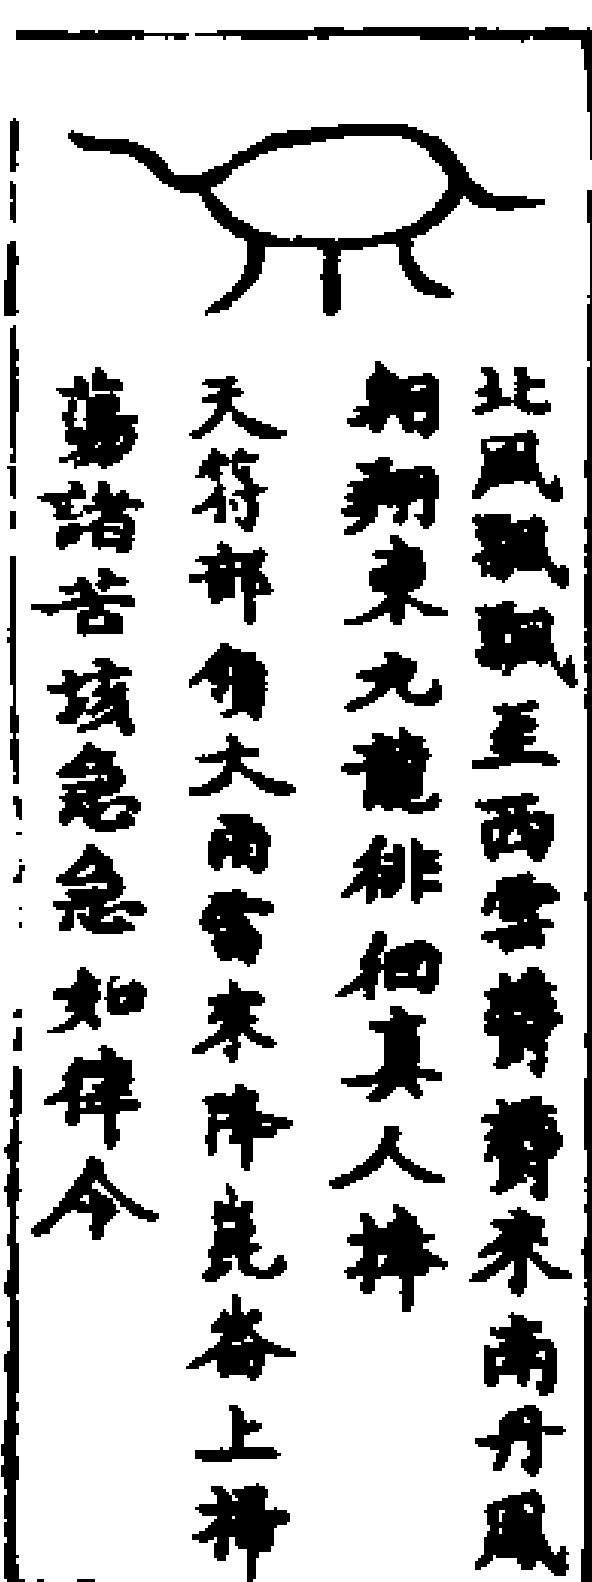 北風飄飄至西雲来南丹鳳
翱翔東九龍徘徊真人捧
天符部領大雨雷来降崑崙上掃
蕩諸苦垓急急如律令